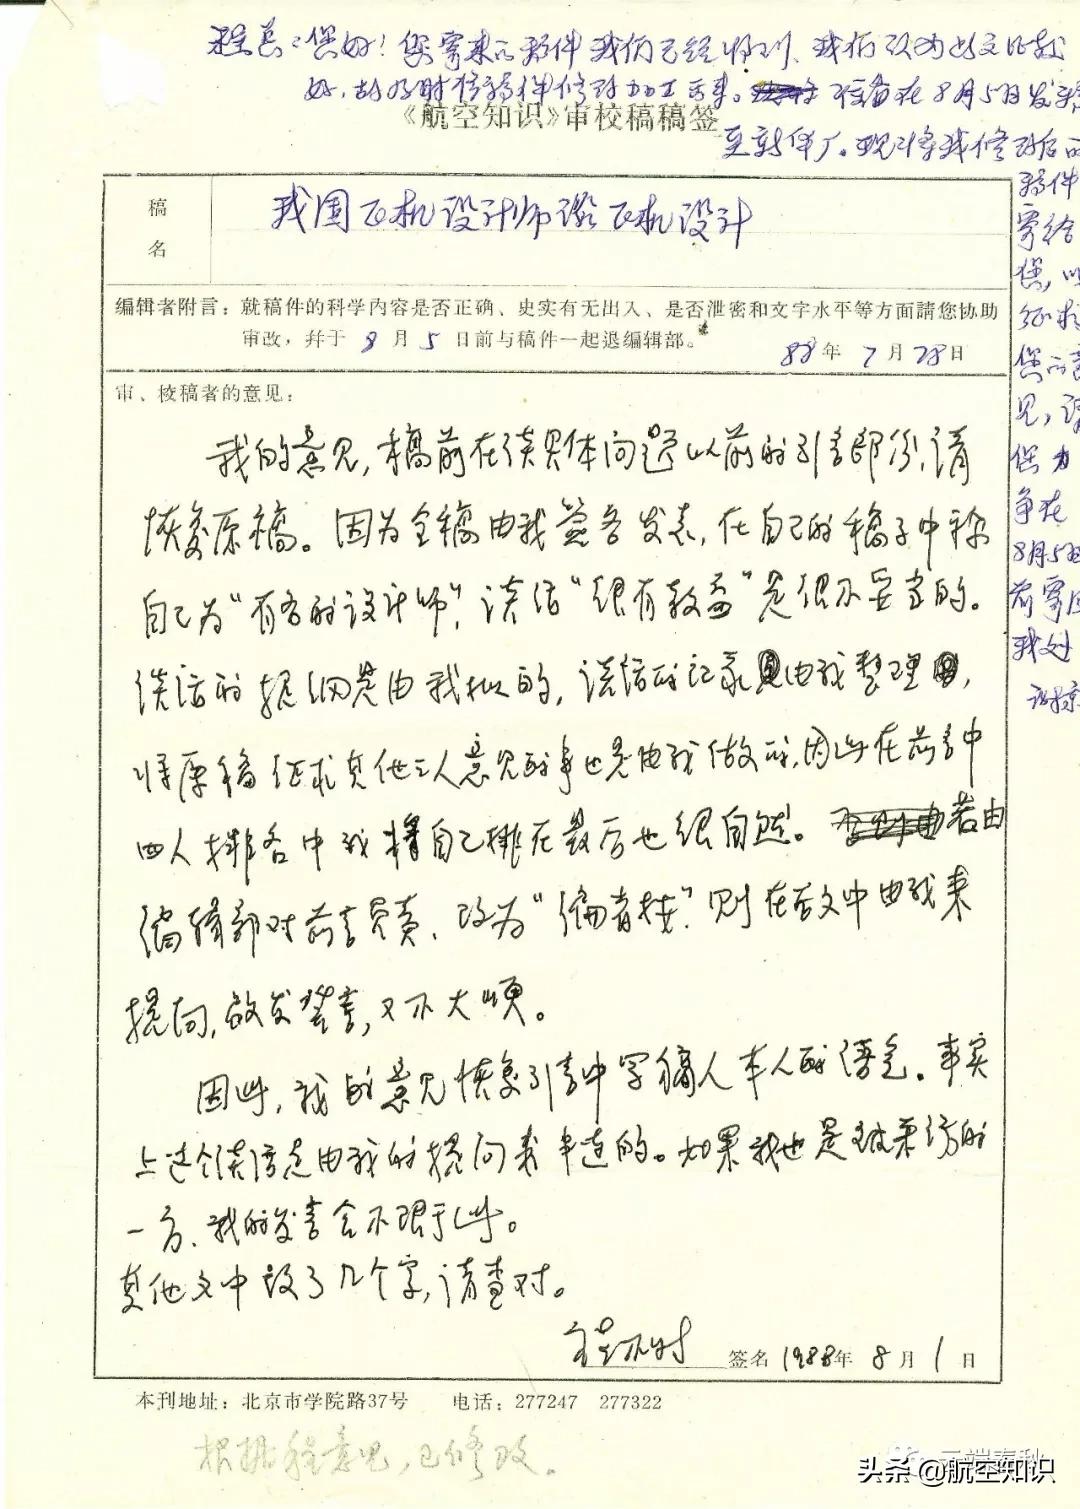 程总：您好！您寄来的稿件我们已经收到，我们认为此文比较
好，故及时将稿件修改加工出来。准备在8月5日发稿
《航空知识》审校稿稿签
至新华厂。现将我修改后的
稿件
寄给
您，以
征求
您的意
见，请
您力
争在
8月5日
前寄回
我处
稿名
我国飞机设计师谈飞机设计
编辑者附言：就稿件的科学内容是否正确、史实有无出入、是否泄密和文字水平等方面請您协助
审改，幷于8月5日前与稿件一起退编辑部。
88年7月28日
审、校稿者的意见：
我的意见，稿前在谈具体问题以前的引言部份，请
恢复原稿。因为全稿由我签名发表，在自己的稿子中称
自己为“有名的设计师”，谈话“很有教益”是很不妥当的。
谈话的提纲是由我拟的，谈话的记录由我整理，
将原稿征求其他三人意见的事也是由我做的，因此在前言中
四人排名中我将自己排在最后也很自然。若由
编辑部对前言负责，改为“编者按”，则在后文中由我来
提问，启发发言，又不大顺。
因此，我的意见恢复引言中写稿人本人的语气。事实
上这个谈话是由我的提问来串连的。如果我也是被采访的
一方，我的发言会不限于此。
其他文中改了几个字，请查对。
程不时 签名1988年8月1日
本刊地址：北京市学院路37号 电话：277247 277322
根据程意见，已修改。
头条 @航空知识